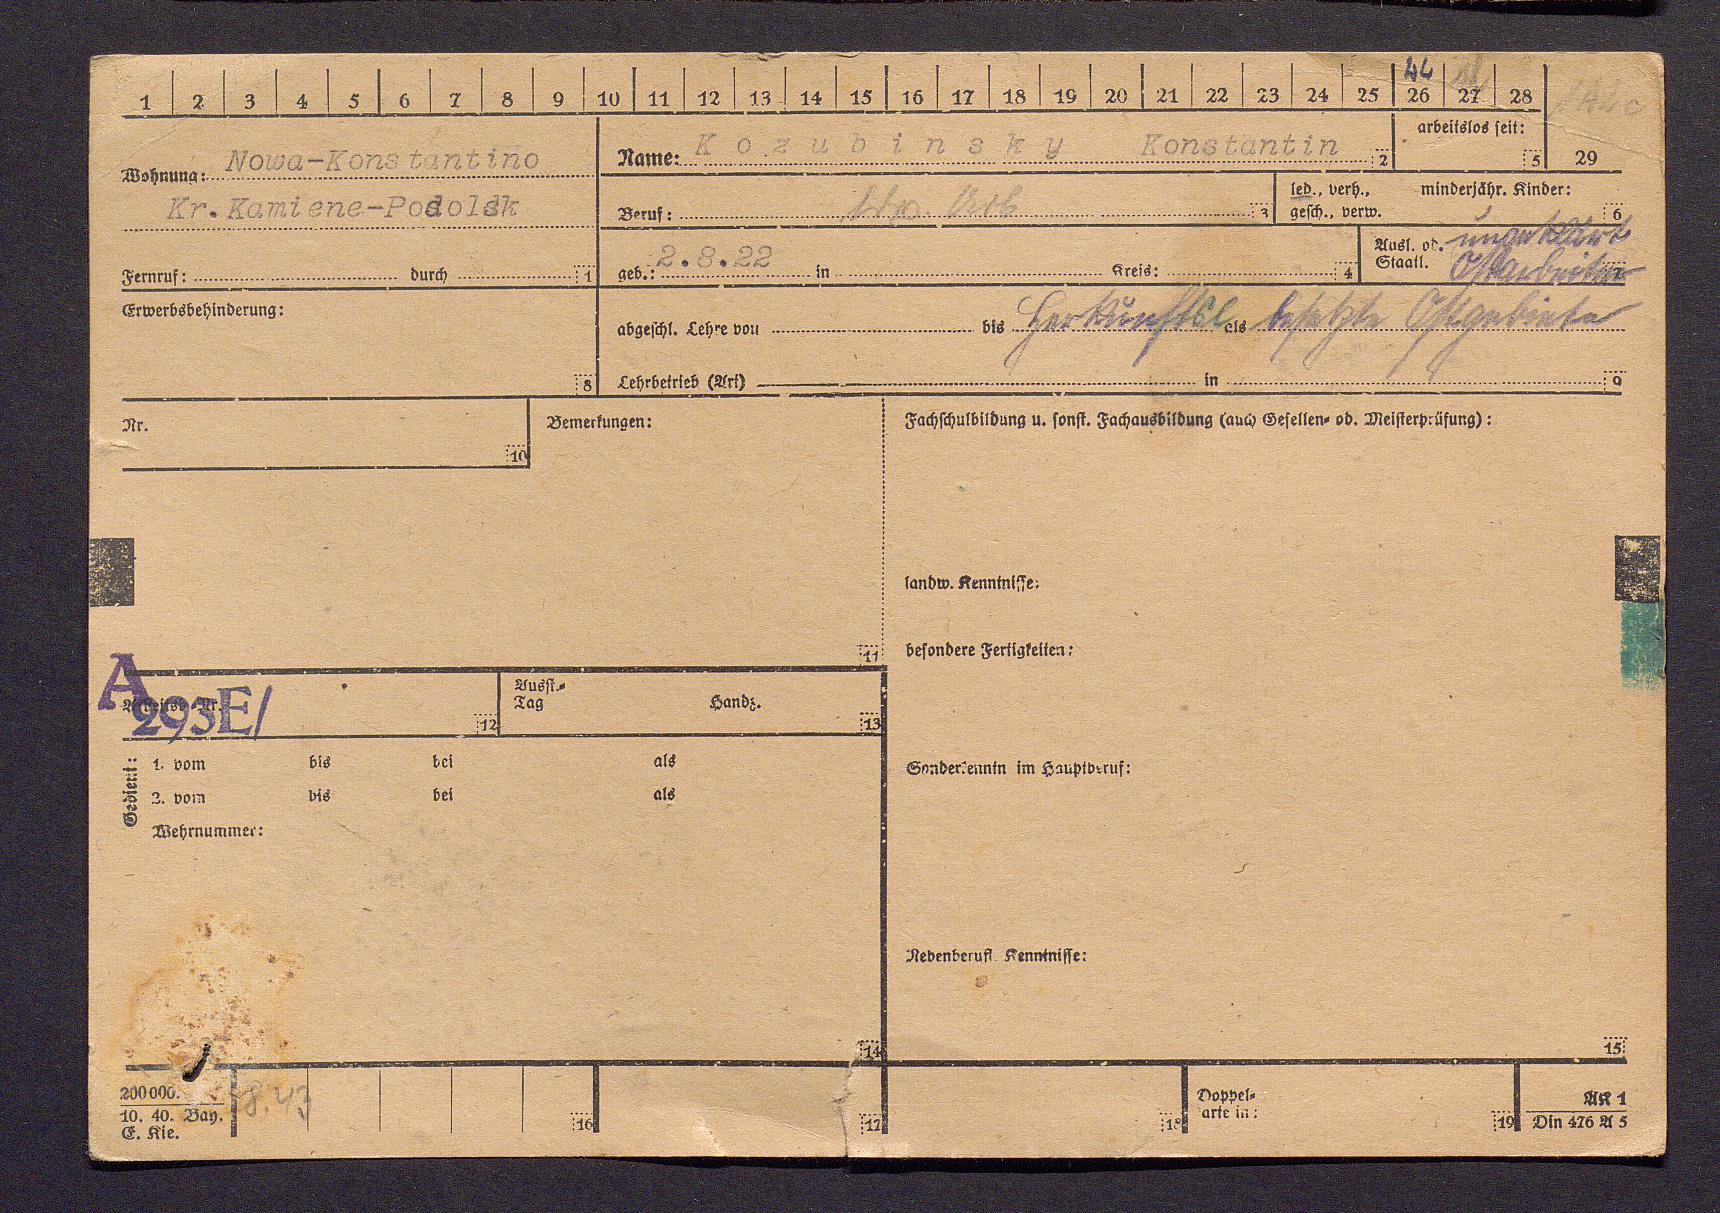 1 2 3 4 5 6 7 8 9 10 11 12 13 14 15 16 17 18 19 20 21 22 23 24 25 26 27 28
44
arbeitslos seit:
5
29
Wohnung: Nowa-Konstantino
Kr. Kamiene-Podolsk
Fernruf: durch 1
Name: Kozubinsky Konstantin 2
Beruf: 3
led., verh., minderjähr. Kinder:
gesch., verw. 6
geb.: 2.8.22 in Kreis: 4
Ausl. od. ungeklärt
Staatl. Ostarbeiter 7
Erwerbsbehinderung:
8
abgeschl. Lehre von bis als
Herkunftsl besetzte Ostgebiete
Lehrbetrieb (Art) in 9
Nr.
10
Bemerkungen:
11
Fachschulbildung u. sonst. Fachausbildung (auch Gesellen- od. Meisterprüfung):
landw. Kenntnisse:
besondere Fertigkeiten:
Sonderkenntn im Hauptberuf:
Nebenberufl. Kenntnisse:
15
Arbeitsb Nr.
A
293E/
12
Ausst.-
Tag Handz.
13
Gedient:
1. vom bis bei als
2. vom bis bei als
Wehrnummer:
14
200000.
10. 40. Bay.
E. Kie.
8.43
16
17
18
Doppel-
arte in:
19
AK 1
Din 476 A 5